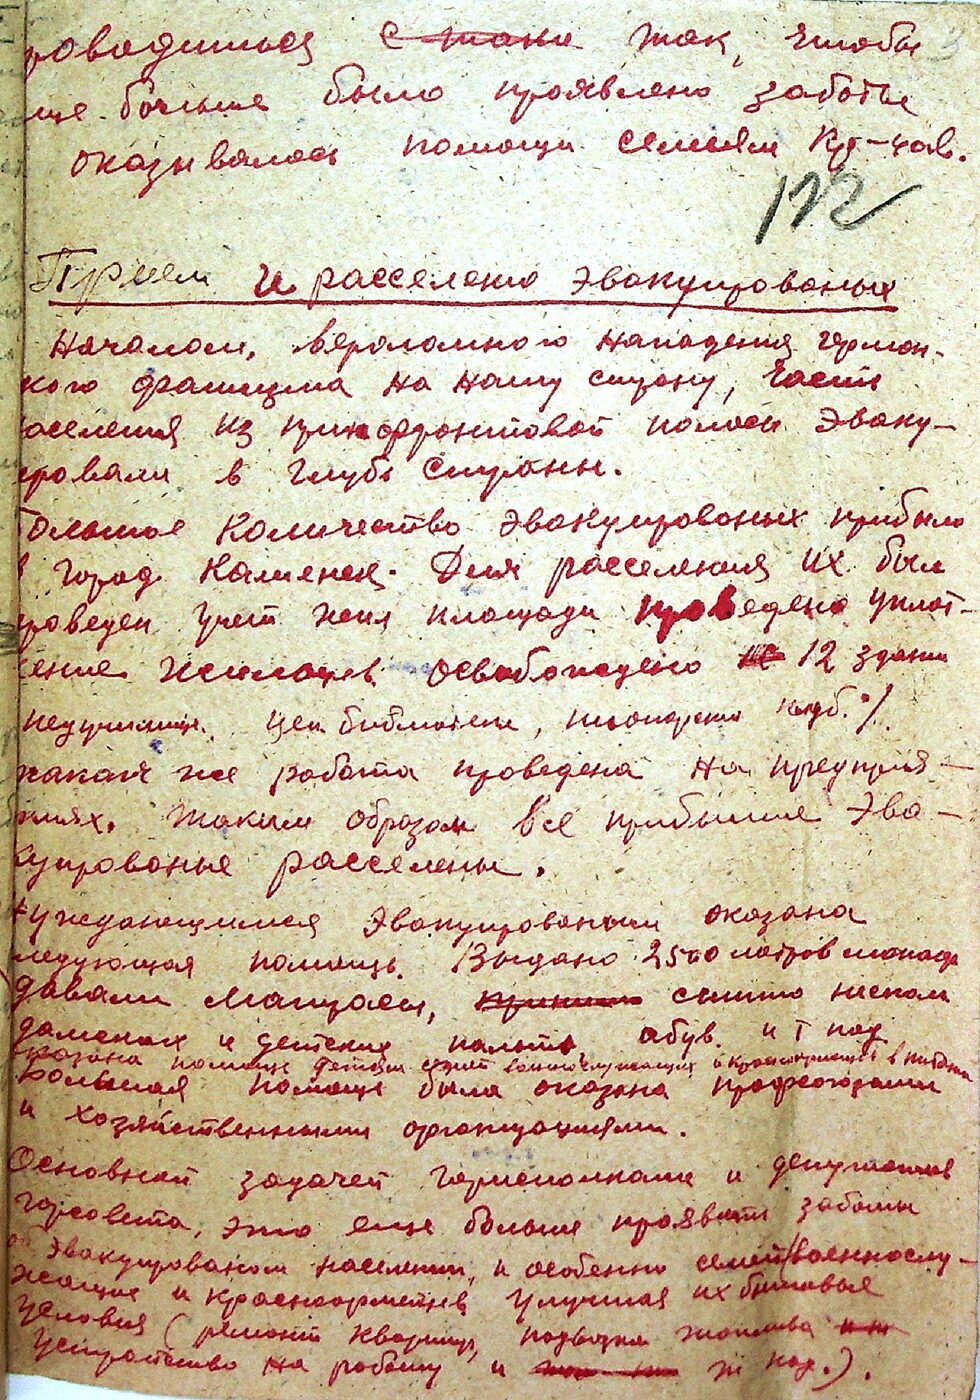 роводиться с тани так, чтобы
ще больше было проявлено заботы
оказывалось помощи семьям Кр-чав.
122
Прием и расселено эвакуированых
Началом, вероломного нападения герман-
кого фашизма на нашу страну, часть
аселения из прифронтовой полосы эваку-
ировали в глубь страны.
Большое количество эвакуированых прибыло
в город Каменск. Для расселения их был
проведен учет жил площади проведено уплот-
ение жильцов освобождено 12 здани
педучилища, цен библиотека, пионерский клуб./
такая же работа проведена на предприя-
тиях. Таким образом все прибывшие эва-
куированые расселены.
Нуждающимся эвакуированым оказана
ледующая помощь. Выдано 2500 матров
давали матрасы, сшито
дамских и детских пальто обув. и т под
оказана помощь детям семей военнослужащих и красноармейцев в
Большая помощь была оказана профсоюзами
и хозяйственными организациями.
Основной задачей горисполкома и депутатов
горсовета, это еще больше проявить заботы
об эвакуированом населении, и особенно семей военнослу-
жащие и красноармейцев улучшая их бытовые
условия (ремонт квартир, подвозка топлива
устройство на работу и т под.).